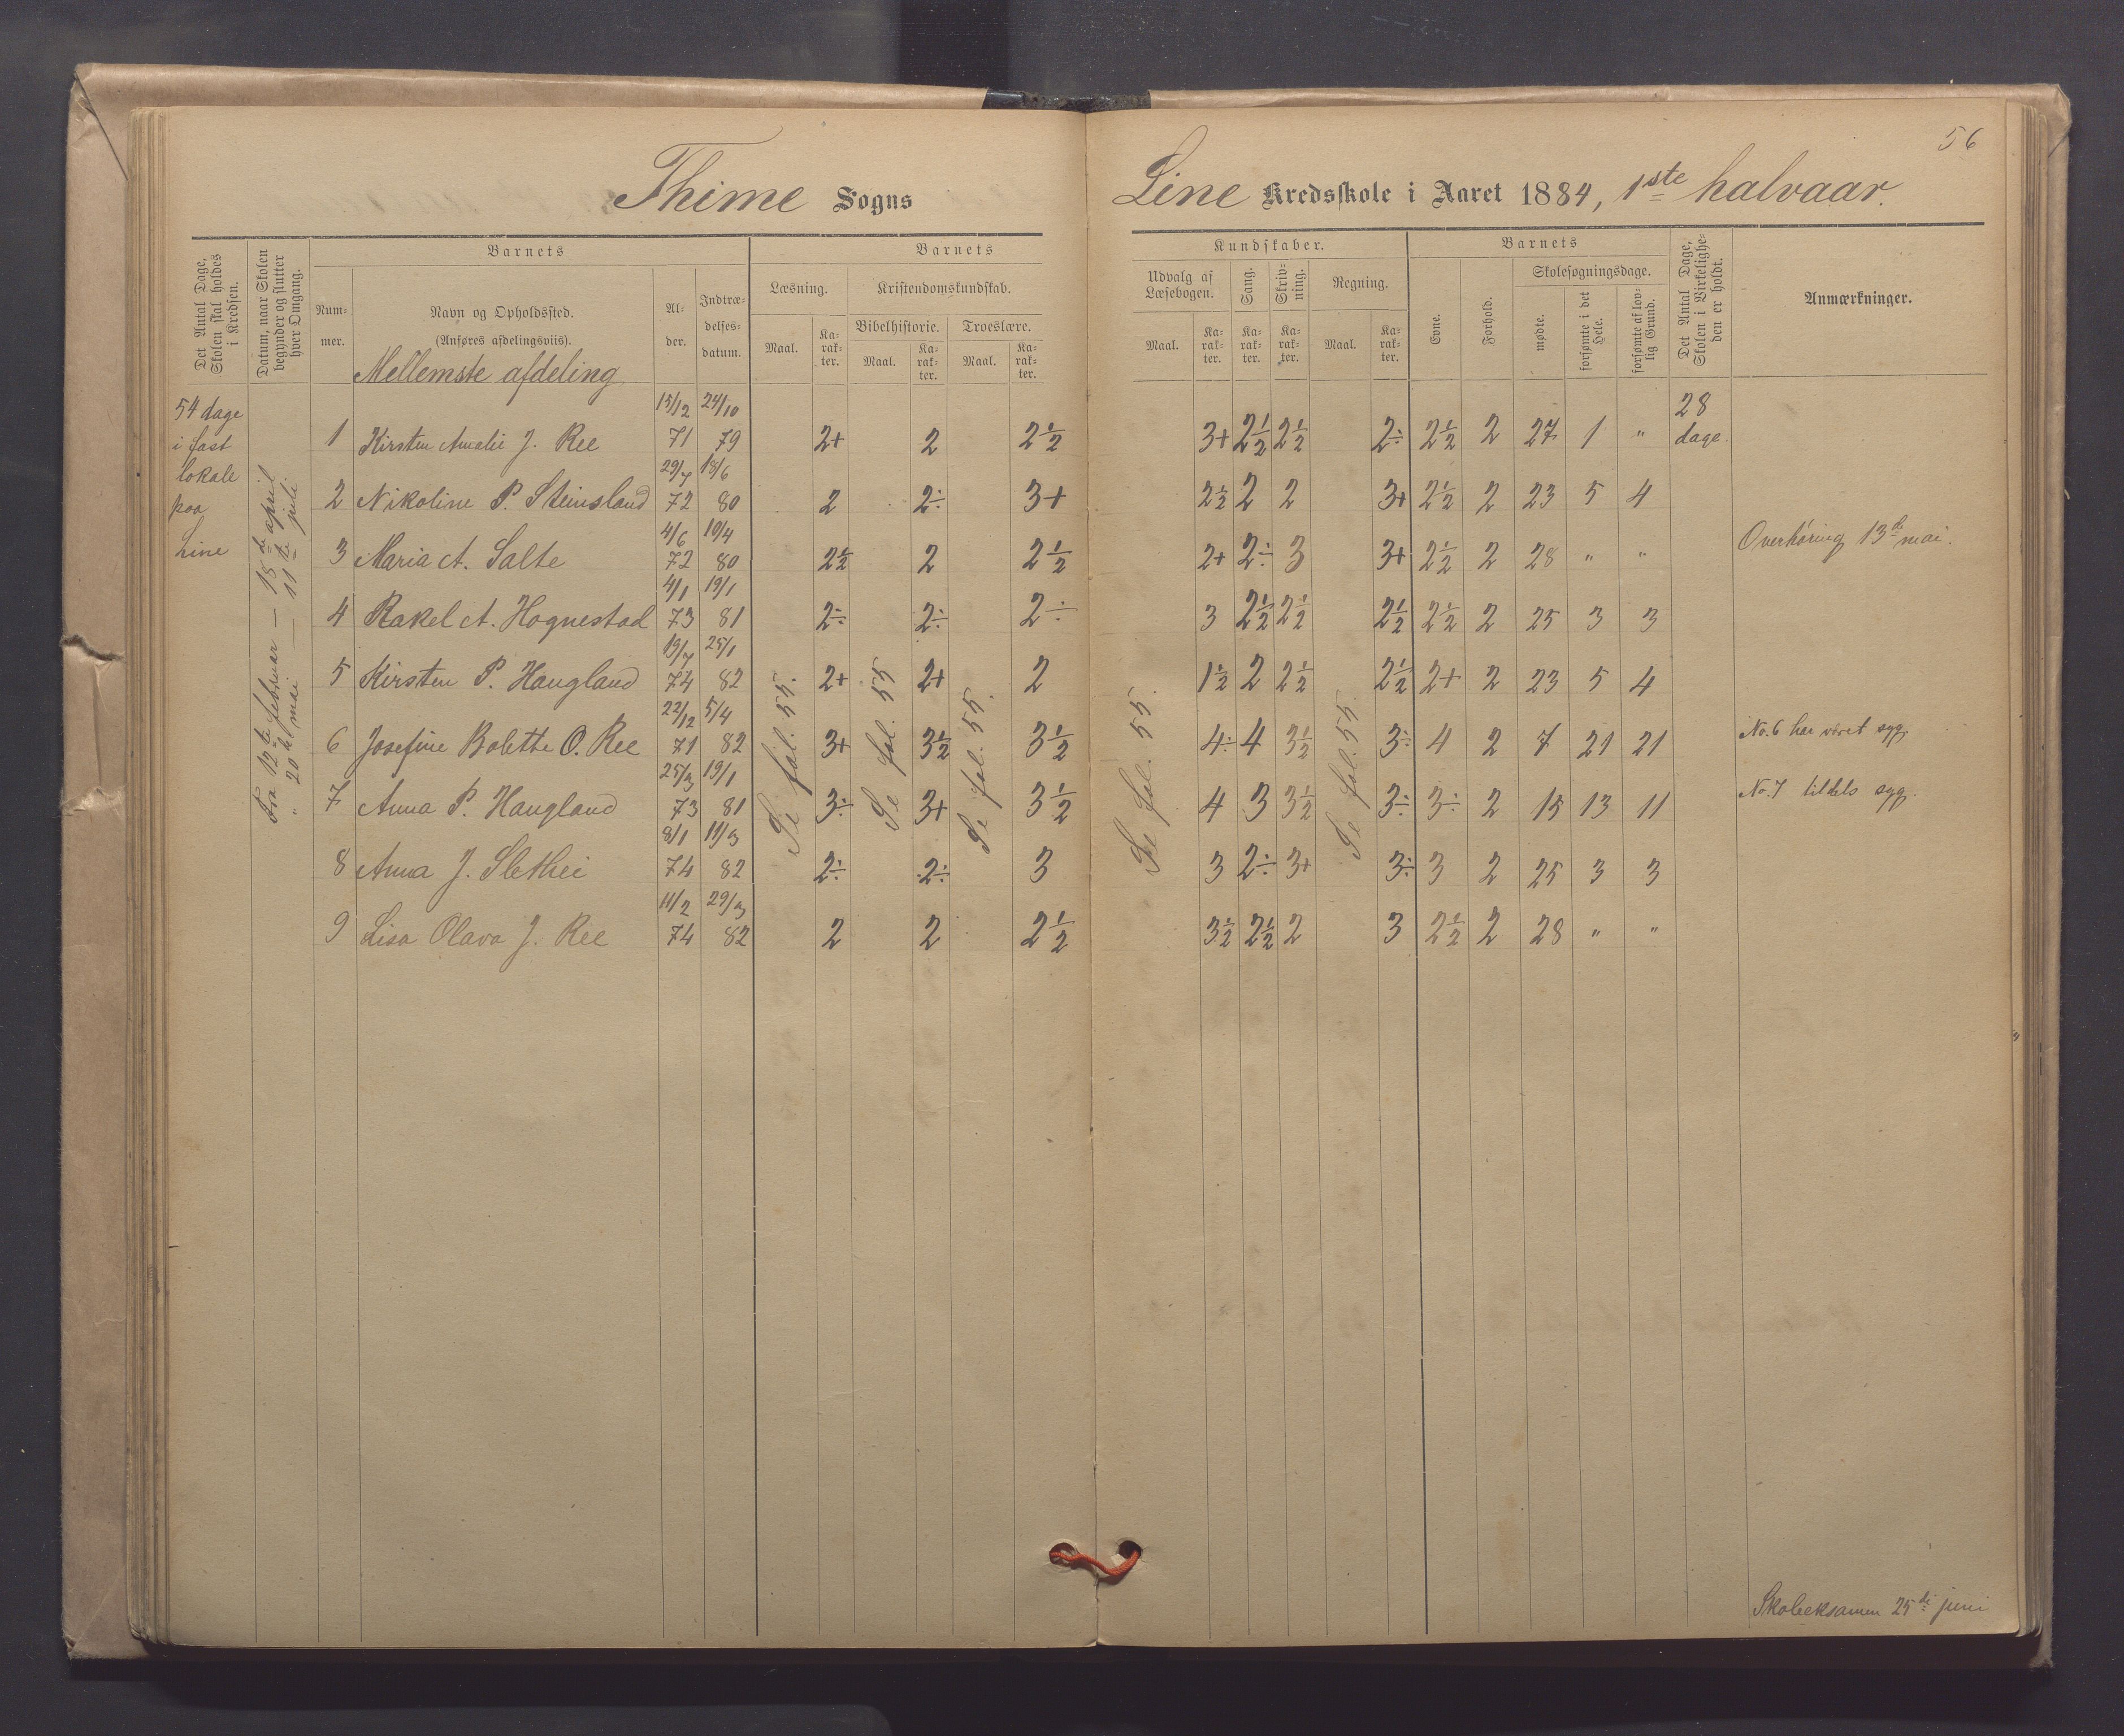 56
Thime Sogns Line Kredsskole i Aaret 1884, 1ste halvaar.
Det Antal Dage, Skolen skal holdes i Kredsen.
Datum, naar Skolen begynder og slutter hver Omgang.
Barnets
Nummer.
Navn og Opholdssted.
(Anføres afdelingsviis).
Alder.
Indtrædelsesdatum.
Barnets
Læsning.
Kristendomskundskab.
Bibelhistorie. Troeslære.
Maal. Karakter. Maal. Karakter. Maal. Karakter.
Kundskaber.
Udvalg af Læsebogen.
Sang.
Skrivning.
Regning.
Maal. Karakter. Karakter. Karakter. Maal. Karakter.
Barnets
Evne.
Forhold.
Skolesøgningsdage.
mødte.
forsømte i det Hele.
forsømte af lovlig Grund.
Det Antal Dage, Skolen i Virkeligheden er holdt.
Anmærkninger.
Mellemste afdeling
54 dage
i fast
lokale
paa
Line
Fra 12te februar — 18de april
" 20de mai — 11te juli
15/12 24/10
1 Kirsten Amalie J. Ree 71 79 2+ 2 2½ 3+ 2½ 2½ 2÷ 2½ 2 27 1 " 28 dage.
29/7 18/6
2 Nikoline P. Steinsland 72 80 2 2÷ 3+ 2½ 2 2 3+ 2½ 2 23 5 4
4/6 10/4
3 Maria A. Salte 72 80 2½ 2 2½ 2+ 2÷ 3 3+ 2½ 2 28 " " Overhøring 13de mai.
4/1 19/1
4 Rakel A. Hognestad 73 81 2÷ 2÷ 2÷ 3 2½ 2½ 2½ 2½ 2 25 3 3
19/7 25/1
5 Kirsten P. Haugland 74 82 2+ 2+ 2 1½ 2 2½ 2½ 2+ 2 23 5 4
22/12 5/4
6 Josefine Bolette O. Ree 71 82 3+ 3½ 3½ 4÷ 4 3½ 3÷ 4 2 7 21 21 No. 6 har været syg.
25/3 19/1
7 Anna P. Haugland 73 81 3÷ 3+ 3½ 4 3 3½ 3÷ 3÷ 2 15 13 11 No. 7 tildels syg.
8/1 11/3
8 Anna J. Slethei 74 82 2÷ 2÷ 3 3 2÷ 3+ 3÷ 3 2 25 3 3
11/2 29/3
9 Lisa Olava J. Ree 74 82 2 2 2½ 3½ 2½ 2 3 2½ 2 28 " "
Se fol. 55.
Se fol. 55
Se fol. 55.
Se fol. 55.
Se fol. 55.
Skoleeksamen 25de juni